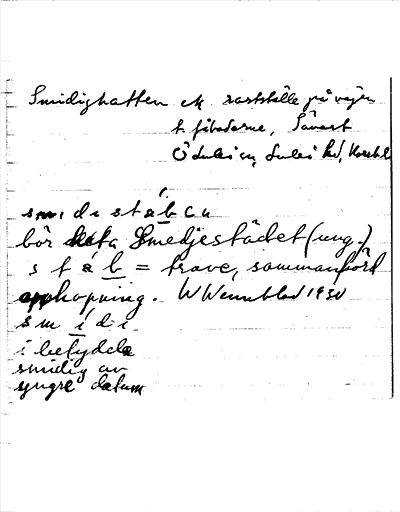 Smidighatten ek rastställe på vägen
t fäbodarne, Sävast
Ö Luleå sn, Luleå
s m i d i s t á b c a
bör heta Smedjestådet (ung.)
s t á b = trave, sammanförd
upphopning. W Wennblad 1930
s m i d i
i betydde
smidig av
yngre datum